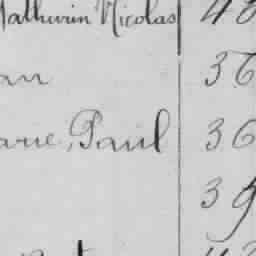 Mathurin Nicolas 48
an 36
arie, Paul 36
39